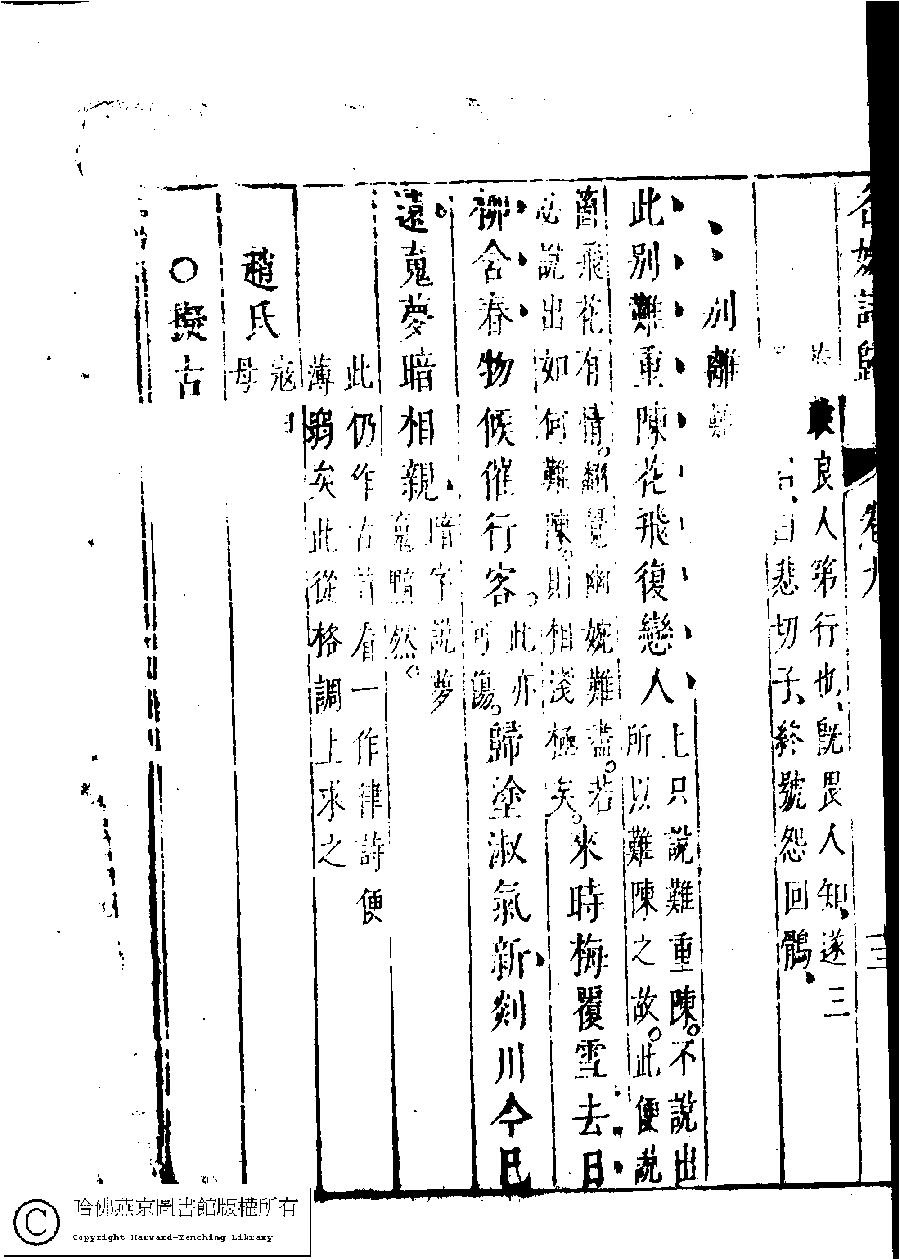 名媛詩歸 卷九 三
良人第行也、旣畏人知、遂三
自悲切子、終號怨回鶻、
別離
此別難重陳花飛復戀人
上只說難重陳。不說出
所以難陳之故。此便說
舊飛花有情。翻覺幽婉難盡。若
必說出如何難陳。則相淺極矣。
來時梅覆雪去日
柳含春物候催行客。
此亦
可傷。
歸塗淑氣新剡川今已
遠䰟夢暗相親
暗字說夢
䰟黯然。
此仍作古詩看一作律詩便
薄弱矣此從格調上求之
趙氏
寇
母
○擬古
哈佛燕京圖書館版權所有
Copyright Harvard-Yenching Library